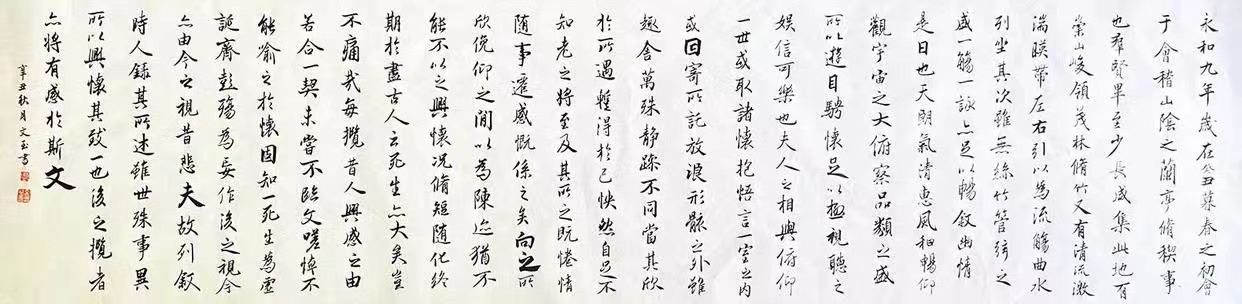 永和九年歲在癸丑暮春之初會
于會稽山陰之蘭亭脩稧事
也羣賢畢至少長咸集此地有
崇山峻領茂林脩竹又有清流激
湍暎帶左右引以為流觴曲水
列坐其次雖無絲竹管絃之
盛一觴一詠亦足以暢敘幽情
是日也天朗氣清惠風和暢仰
觀宇宙之大俯察品類之盛
所以遊目騁懷足以極視聽之
娛信可樂也夫人之相與俯仰
一世或取諸懷抱悟言一室之內
或因寄所託放浪形骸之外雖
趣舍萬殊靜躁不同當其欣
於所遇蹔得於己怏然自足不
知老之將至及其所之既惓情
隨事遷感慨係之矣向之所
欣俛仰之間以為陳迹猶不
能不以之興懷況脩短隨化終
期於盡古人云死生亦大矣豈
不痛哉每攬昔人興感之由
若合一契未嘗不臨文嗟悼不
能喻之於懷固知一死生為虛
誕齊彭殤為妄作後之視今
亦由今之視昔悲夫故列敘
時人錄其所述雖世殊事異
所以興懷其致一也後之攬者
亦將有感於斯文
辛丑秋月文玉書